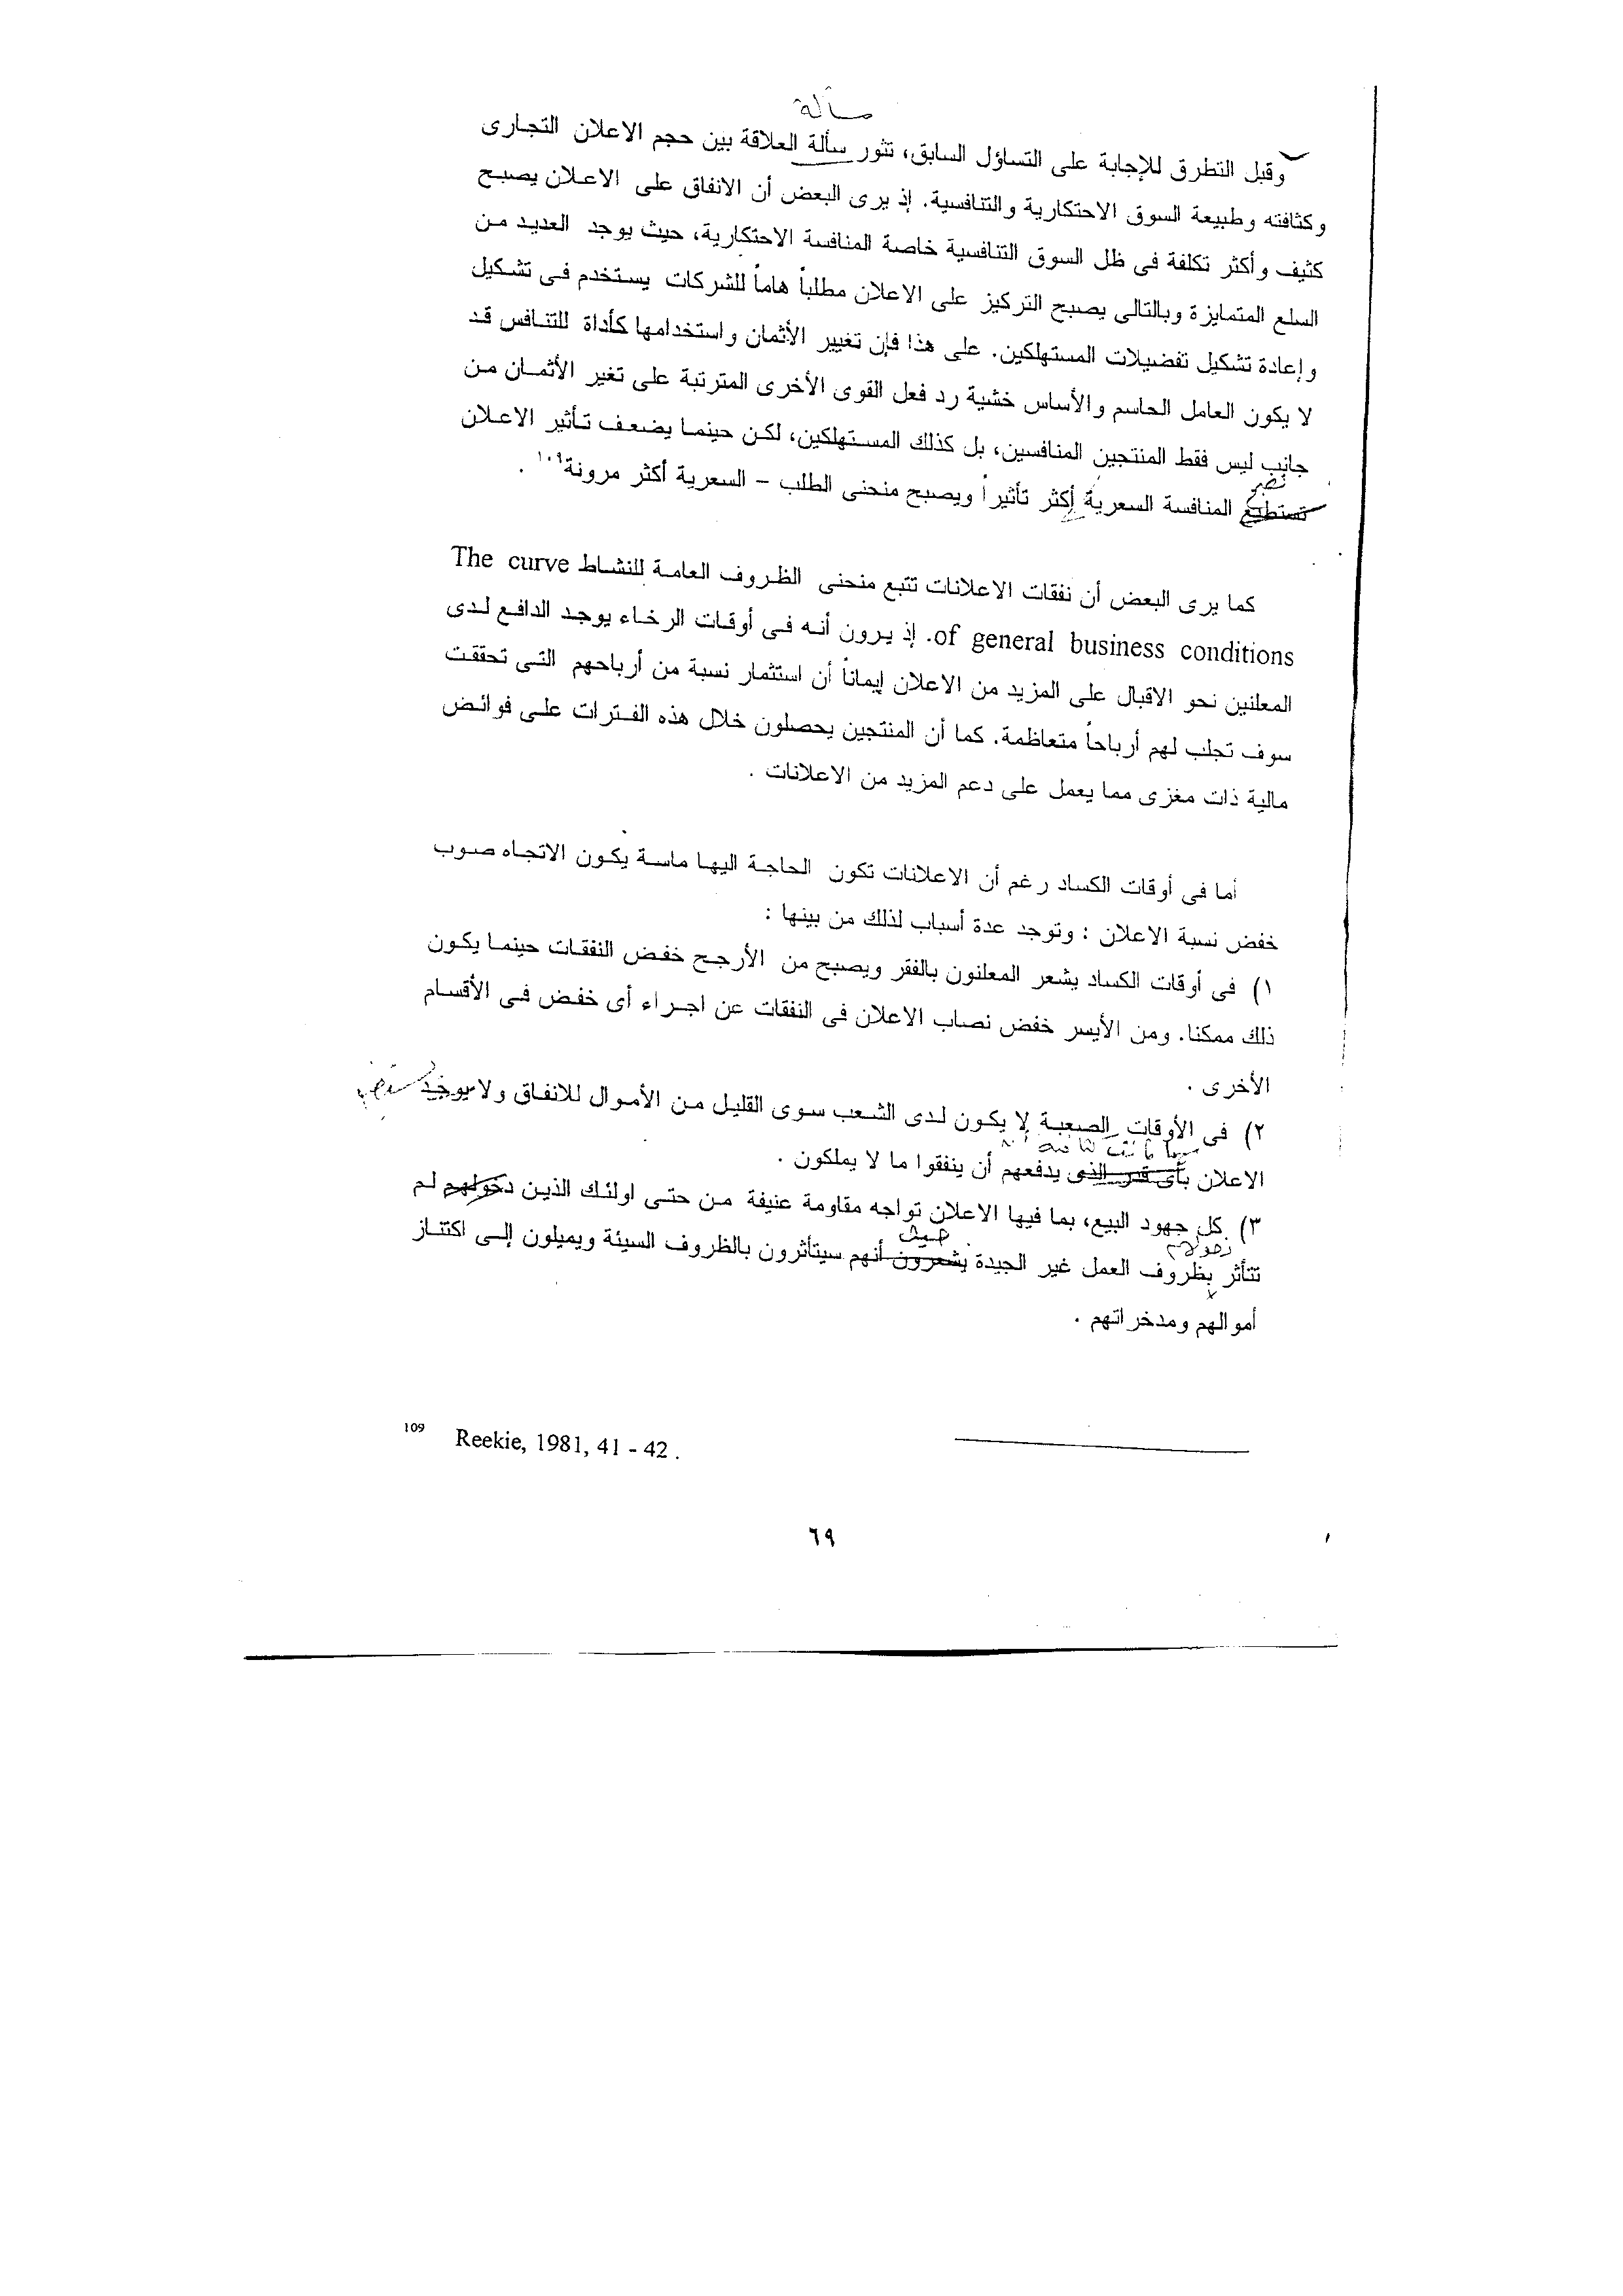 مسألة
وقبل التطرق للإجابة على التساؤل السابق، تثور سألة العلاقة بين حجم الاعلان التجارى
وكثافته وطبيعة السوق الاحتكارية والتنافسية. إذ يرى البعض أن الانفاق على الاعلان يصبح
كثيف وأكثر تكلفة فى ظل السوق التنافسية خاصة المنافسة الاحتكارية، حيث يوجد العديد من
السلع المتمايزة وبالتالى يصبح التركيز على الاعلان مطلباً هاماً للشركات يستخدم فى تشكيل
وإعادة تشكيل تفضيلات المستهلكين. على هذا فإن تغيير الأثمان واستخدامها كأداة للتنافس قد
لا يكون العامل الحاسم والأساس خشية رد فعل القوى الأخرى المترتبة على تغير الأثمان من
جانب ليس فقط المنتجين المنافسين، بل كذلك المستهلكين، لكن حينما يضعف تأثير الاعلان
تصبح
تستطيع المنافسة السعرية أكثر تأثيراً ويصبح منحنى الطلب – السعرية أكثر مرونة١٠٩ .
كما يرى البعض أن نفقات الاعلانات تتبع منحنى الظروف العامة للنشاط The curve
of general business conditions. إذ يرون أنه فى أوقات الرخاء يوجد الدافع لدى
المعلنين نحو الاقبال على المزيد من الاعلان إيماناً أن استثمار نسبة من أرباحهم التى تحققت
سوف تجلب لهم أرباحاً متعاظمة. كما أن المنتجين يحصلون خلال هذه الفترات على فوائض
مالية ذات مغزى مما يعمل على دعم المزيد من الاعلانات .
أما فى أوقات الكساد رغم أن الاعلانات تكون الحاجة اليها ماسة يكون الاتجاه صوب
خفض نسبة الاعلان ؛ وتوجد عدة أسباب لذلك من بينها :
١) فى أوقات الكساد يشعر المعلنون بالفقر ويصبح من الأرجح خفض النفقات حينما يكون
ذلك ممكنا. ومن الأيسر خفض نصاب الاعلان فى النفقات عن اجراء أى خفض فى الأقسام
الأخرى .
٢) فى الأوقات الصعبة لا يكون لدى الشعب سوى القليل من الأموال للانفاق ولا يوجد
الاعلان بأى قدر الذى يدفعهم أن ينفقوا ما لا يملكون .
٣) كل جهود البيع، بما فيها الاعلان تواجه مقاومة عنيفة من حتى اولئك الذين دخولهم لم
حيث
تتأثر بظروف العمل غير الجيدة يشعرون أنهم سيتأثرون بالظروف السيئة ويميلون إلى اكتناز
أموالهم ومدخراتهم .
109 Reekie, 1981, 41 - 42 .
٦٩